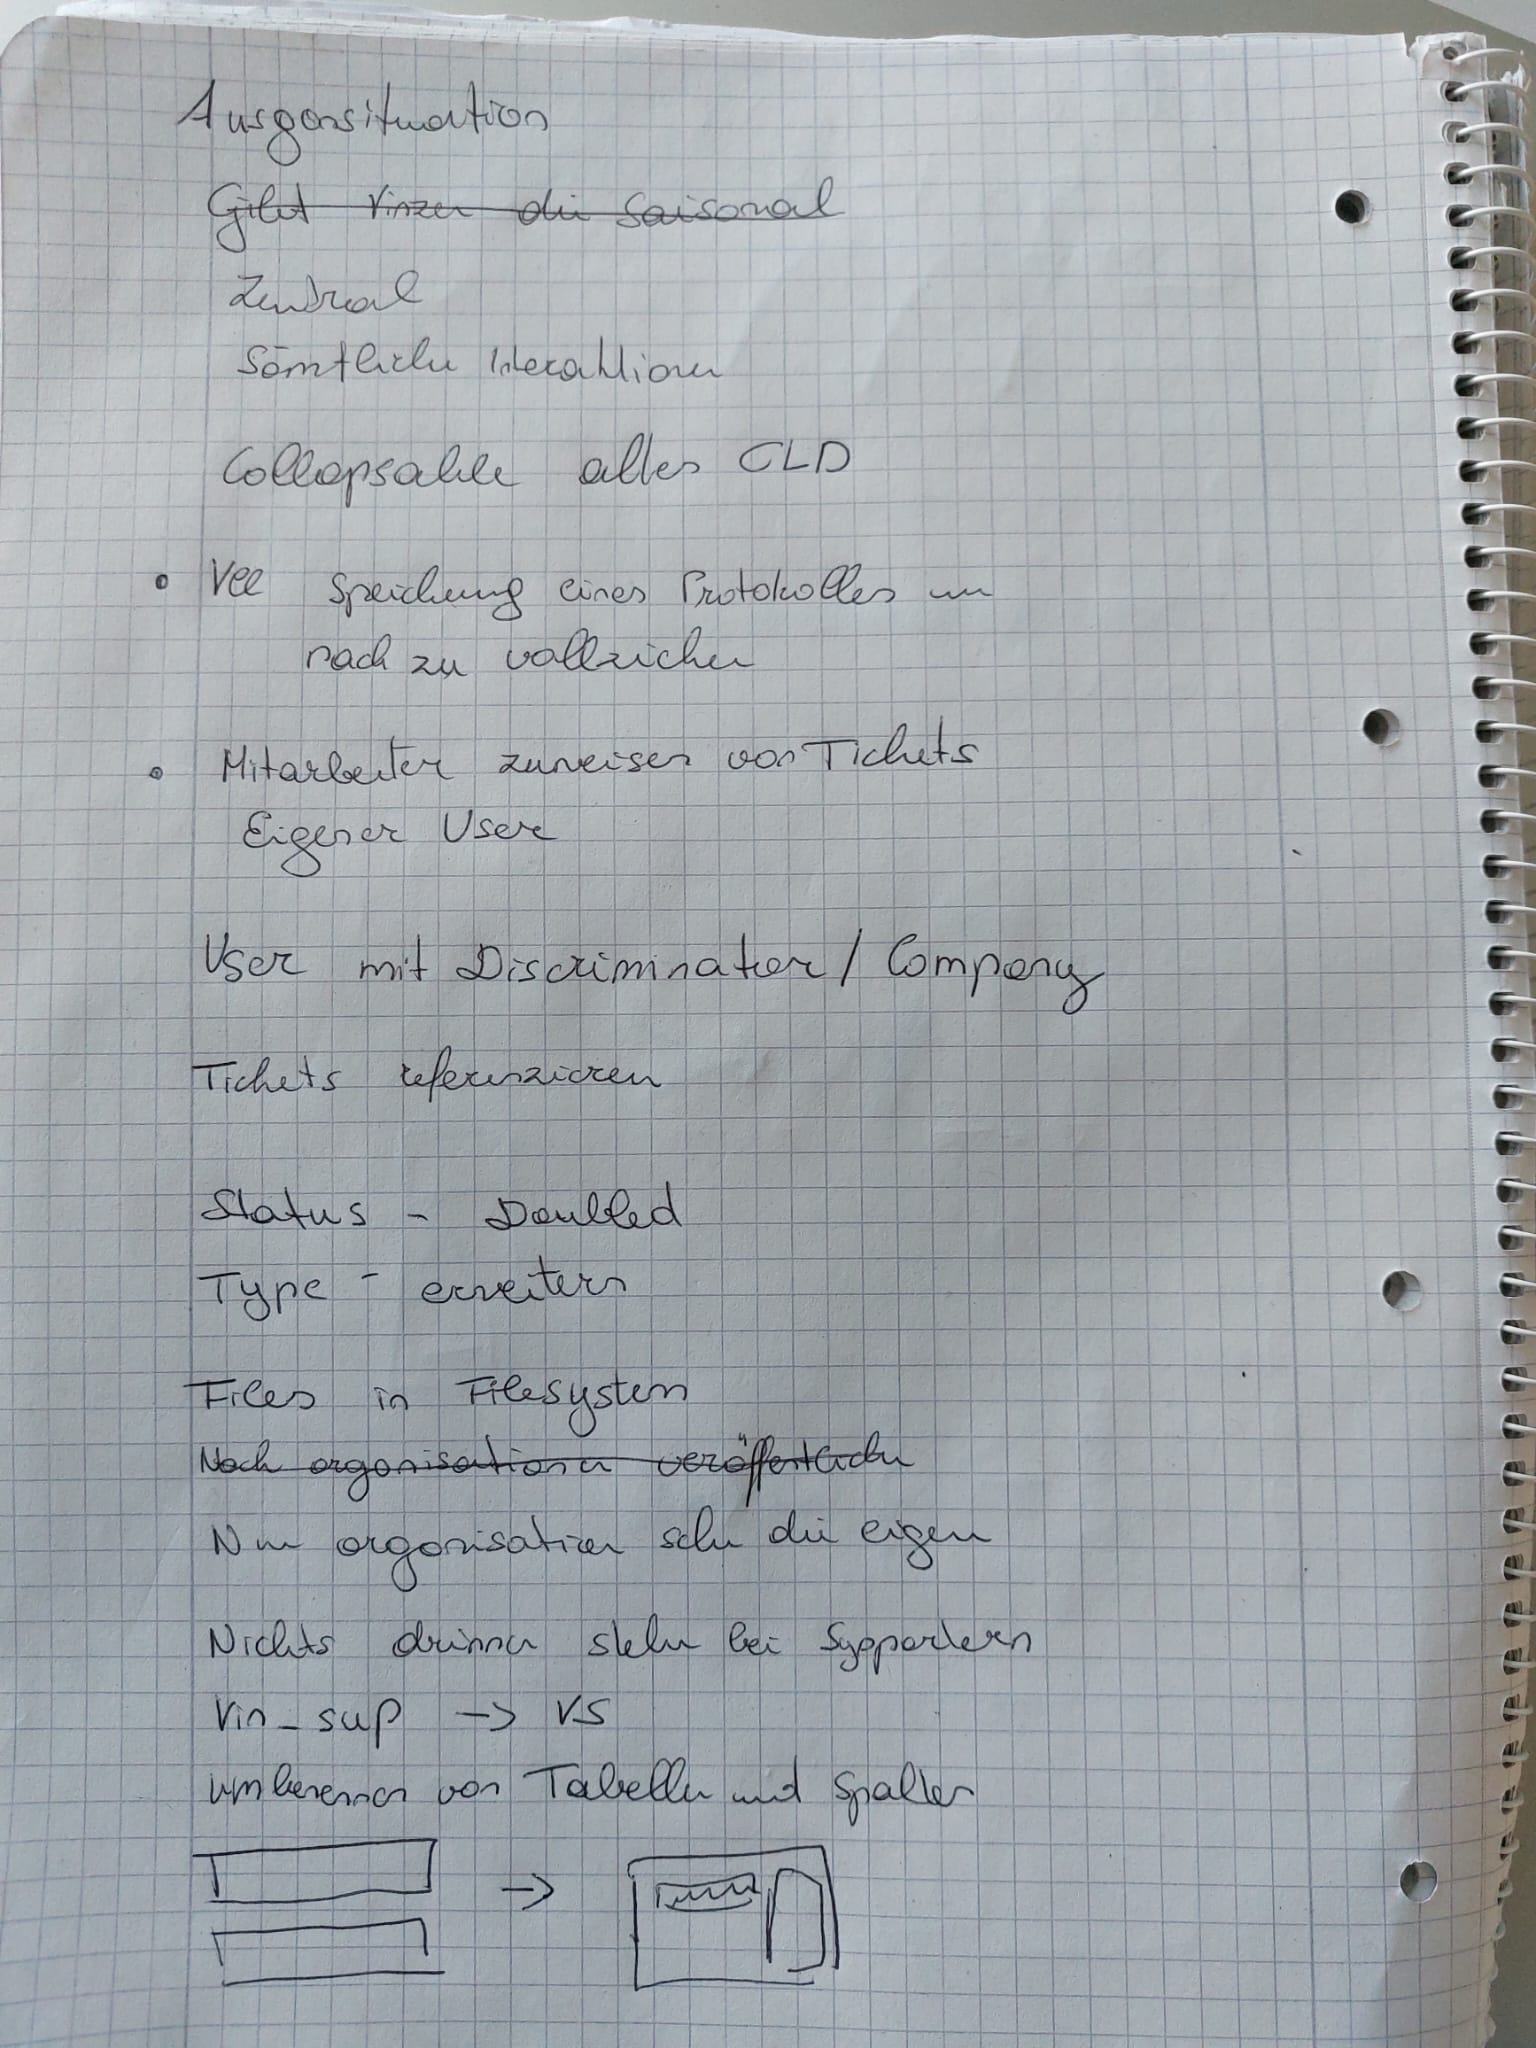 Ausgansituation
Gibt Vinzer die Saisonal
Zentral
Sämtliche Interaktionen
Collapsable alles CLD
• Vll Speicherung eines Protokolles um
nach zu vollziehen
• Mitarbeiter zuweisen von Tickets
Eigener User
User mit Discriminator / Company
Tickets referenzieren
Status - Doubled
Type - erweitern
Files in Filesystem
Nach organisationen veröffentlichen
Nur organisation sehen die eigen
Nichts drinnen stehn bei Supportern
Vin_sup -> VS
umbenennen von Tabellen und Spalten
->